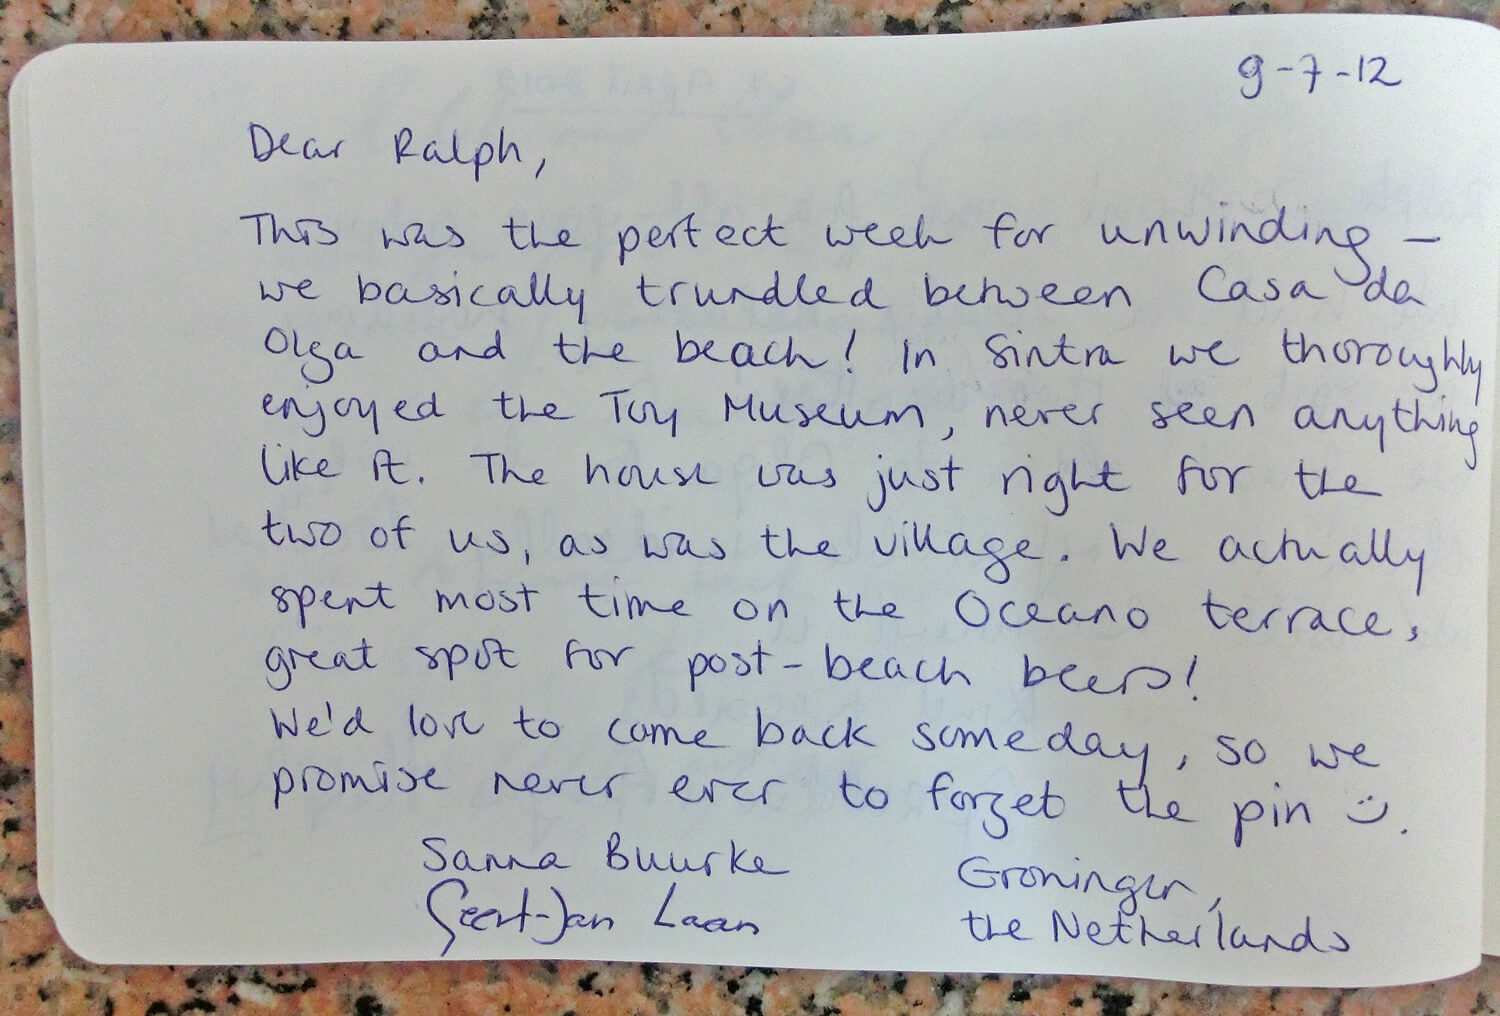 9-7-12
Dear Ralph,
This was the perfect week for unwinding –
we basically trundled between Casa da
Olga and the beach! In Sintra we thoroughly
enjoyed the Toy Museum, never seen anything
like it. The house was just right for the
two of us, as was the village. We actually
spent most time on the Oceano terrace,
great spot for post-beach beers!
We'd love to come back someday, so we
promise never ever to forget the pin :).
Sanna Buurke
Geert-Jan Laan
Groningen,
the Netherlands